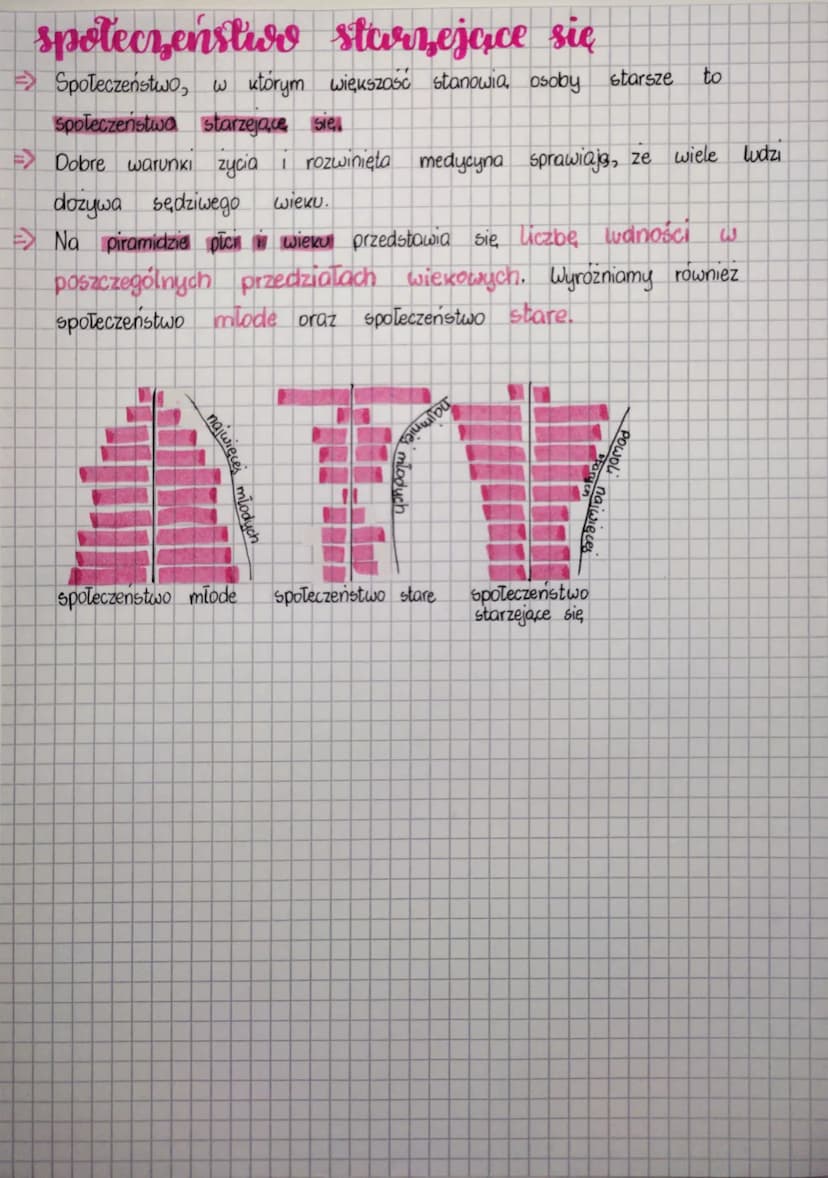 społeczeństwo starzejące się
=> Społeczeństwo, w którym większość stanowią osoby starsze to
społeczeństwa starzejące się.
=> Dobre warunki życia i rozwinięta medycyna sprawiają, że wiele ludzi
dożywa sędziwego wieku.
=> Na piramidzie płci i wieku przedstawia się liczbę ludności w
poszczególnych przedziałach wiekowych. Wyróżniamy również
społeczeństwo młode oraz społeczeństwo stare.
najwięcej młodych
najmniej młodych
powoli najwięcej
starych
społeczeństwo młode
społeczeństwo stare
społeczeństwo
starzejące się